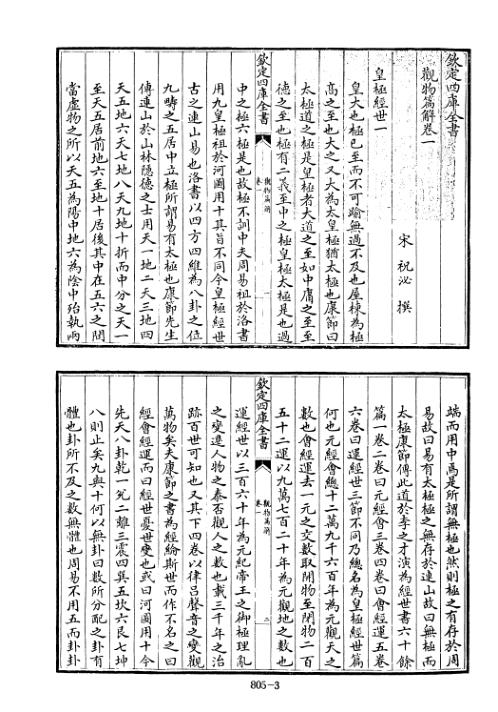 欽定四庫全書
觀物篇解卷一
宋 祝泌 撰
皇極經世一
皇大也極已至而不可踰無過不及也屋棟為極
高之至也大之又大為太皇極猶太極也康節曰
太極道之極是皇極者大道之至如中庸之至至
德之至也極有二義至中之極皇極太極是也過
中之極六極是也故極不訓中夫周易祖於洛書
用九皇極祖於河圖用十其旨不同今皇極經世
古之連山易也洛書以四方四維為八卦之位
九疇之五居中立極所謂易有太極也康節先生
傳連山於山林隱德之士用天一地二天三地四
天五地六天七地八天九地十折而中分之天一
至天五居前地六至地十居後其中在五六之間
當虛物之所以天五為陽中地六為陰中殆執兩
欽定四庫全書
觀物篇解
卷一
一
端而用中焉是所謂無極也然則極之有存於周
易故曰易有太極極之無存於連山故曰無極而
太極康節傳此道於李之才演為經世書六十餘
篇一卷二卷曰元經會三卷四卷曰會經運五卷
六卷曰運經世三節不同乃總名為皇極經世篇
何也元經會總十二萬九千六百年為元觀天之
數也會經運去一元之交數取開物至閉物二百
五十二運以九萬七百二十年為元觀地之數也
運經世以三百六十年為元紀帝王之御極理亂
之變達人物之泰否觀人之數也載三千年之治
跡百世可知也又其下四卷以律呂聲音之變觀
萬物矣夫康節之書為經綸斯世而作不名之曰
經會經運而曰經世憂世變也或曰河圖用十今
先天八卦乾一兌二離三震四巽五坎六艮七坤
八則止矣九與十何以無卦曰數所分配之卦有
體也卦所不及之數無體也周易不用五而卦卦
欽定四庫全書
觀物篇解
卷一
二
805-3